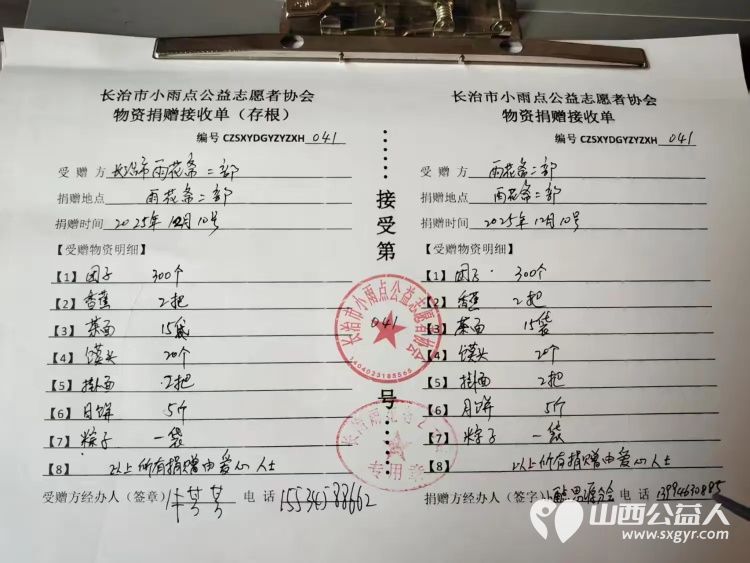 长治市小雨点公益志愿者协会
物资捐赠接收单（存根）
编号 CZSXYDGYZYZXH 041
受 赠 方 长治市雨花斋二部
捐赠地点 雨花斋二部
捐赠时间 2025年12月10号
【受赠物资明细】
【1】 团子 300个
【2】 香蕉 2把
【3】 菜面 15袋
【4】 馍头 20个
【5】 挂面 2把
【6】 月饼 5个
【7】 粽子 一袋
【8】 以上所有捐赠由爱心人士
受赠方经办人（签章） 电 话
接受第
041
号
长治市小雨点公益志愿者协会
1404023185555
专用章
长治市小雨点公益志愿者协会
物资捐赠接收单
编号 CZSXYDGYZYZXH 041
受 赠 方 雨花斋二部
捐赠地点 雨花斋二部
捐赠时间 2025年12月10号
【受赠物资明细】
【1】 团子 300个
【2】 香蕉 2把
【3】 菜面 15袋
【4】 馍头 20个
【5】 挂面 2把
【6】 月饼 5个
【7】 粽子 一袋
【8】 以上所有捐赠由爱心人士
捐赠方经办人（签字） 电 话 13994630885
山西公益人
www.sxgyr.com